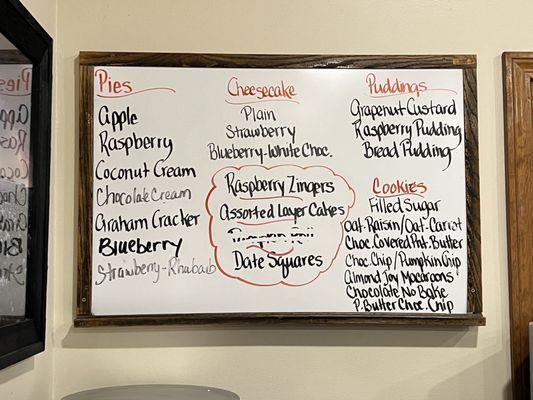 Pies
Apple
Raspberry
Coconut Cream
Chocolate Cream
Graham Cracker
Blueberry
Strawberry-Rhubarb
Cheesecake
Plain
Strawberry
Blueberry-White Choc.
Raspberry Zingers
Assorted Layer Cakes
Date Squares
Puddings
Grapenut Custard
Raspberry Pudding
Bread Pudding
Cookies
Filled Sugar
Oat-Raisin/Oat-Carrot
Choc. Covered Pnt. Butter
Choc. Chip / Pumpkin Chip
Almond Joy Macaroons
Chocolate No Bake
P. Butter Choc. Chip